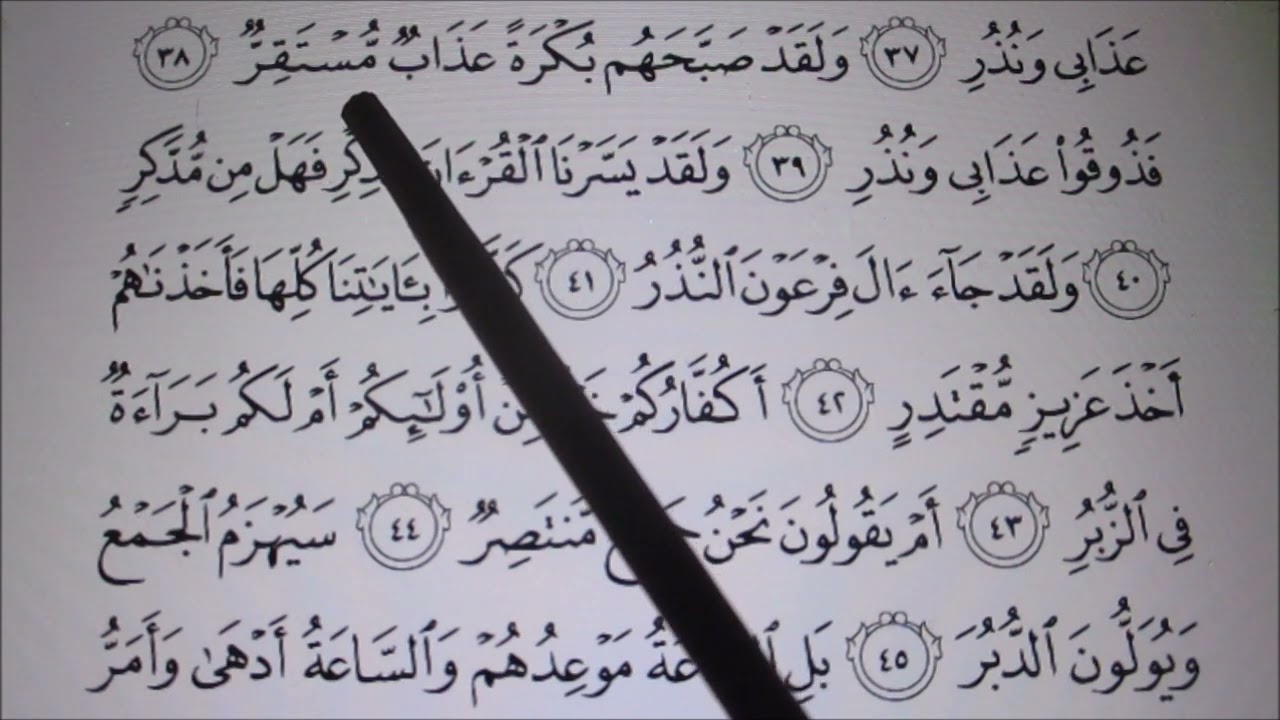 عَذَابِى وَنُذُرِ ٣٧ وَلَقَدْ صَبَّحَهُم بُكْرَةً عَذَابٌ مُّسْتَقِرٌّ ٣٨
فَذُوقُوا۟ عَذَابِى وَنُذُرِ ٣٩ وَلَقَدْ يَسَّرْنَا ٱلْقُرْءَانَ فَهَلْ مِن مُّدَّكِرٍ
٤٠ وَلَقَدْ جَآءَ ءَالَ فِرْعَوْنَ ٱلنُّذُرُ ٤١ بِـَٔايَـٰتِنَا كُلِّهَا فَأَخَذْنَـٰهُمْ
أَخْذَ عَزِيزٍ مُّقْتَدِرٍ ٤٢ أَكُفَّارُكُمْ مِّنْ أُو۟لَـٰٓئِكُمْ أَمْ لَكُم بَرَآءَةٌ
فِى ٱلزُّبُرِ ٤٣ أَمْ يَقُولُونَ نَحْنُ مُّنتَصِرٌ ٤٤ سَيُهْزَمُ ٱلْجَمْعُ
وَيُوَلُّونَ ٱلدُّبُرَ ٤٥ بَلِ مَوْعِدُهُمْ وَٱلسَّاعَةُ أَدْهَىٰ وَأَمَرُّ